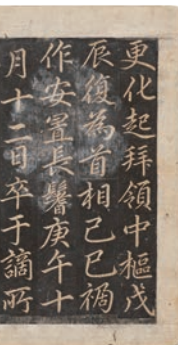 更化起拜領中樞戊
辰復為首相己巳禍
作安置長鬐庚午十
月十二日卒于謫所